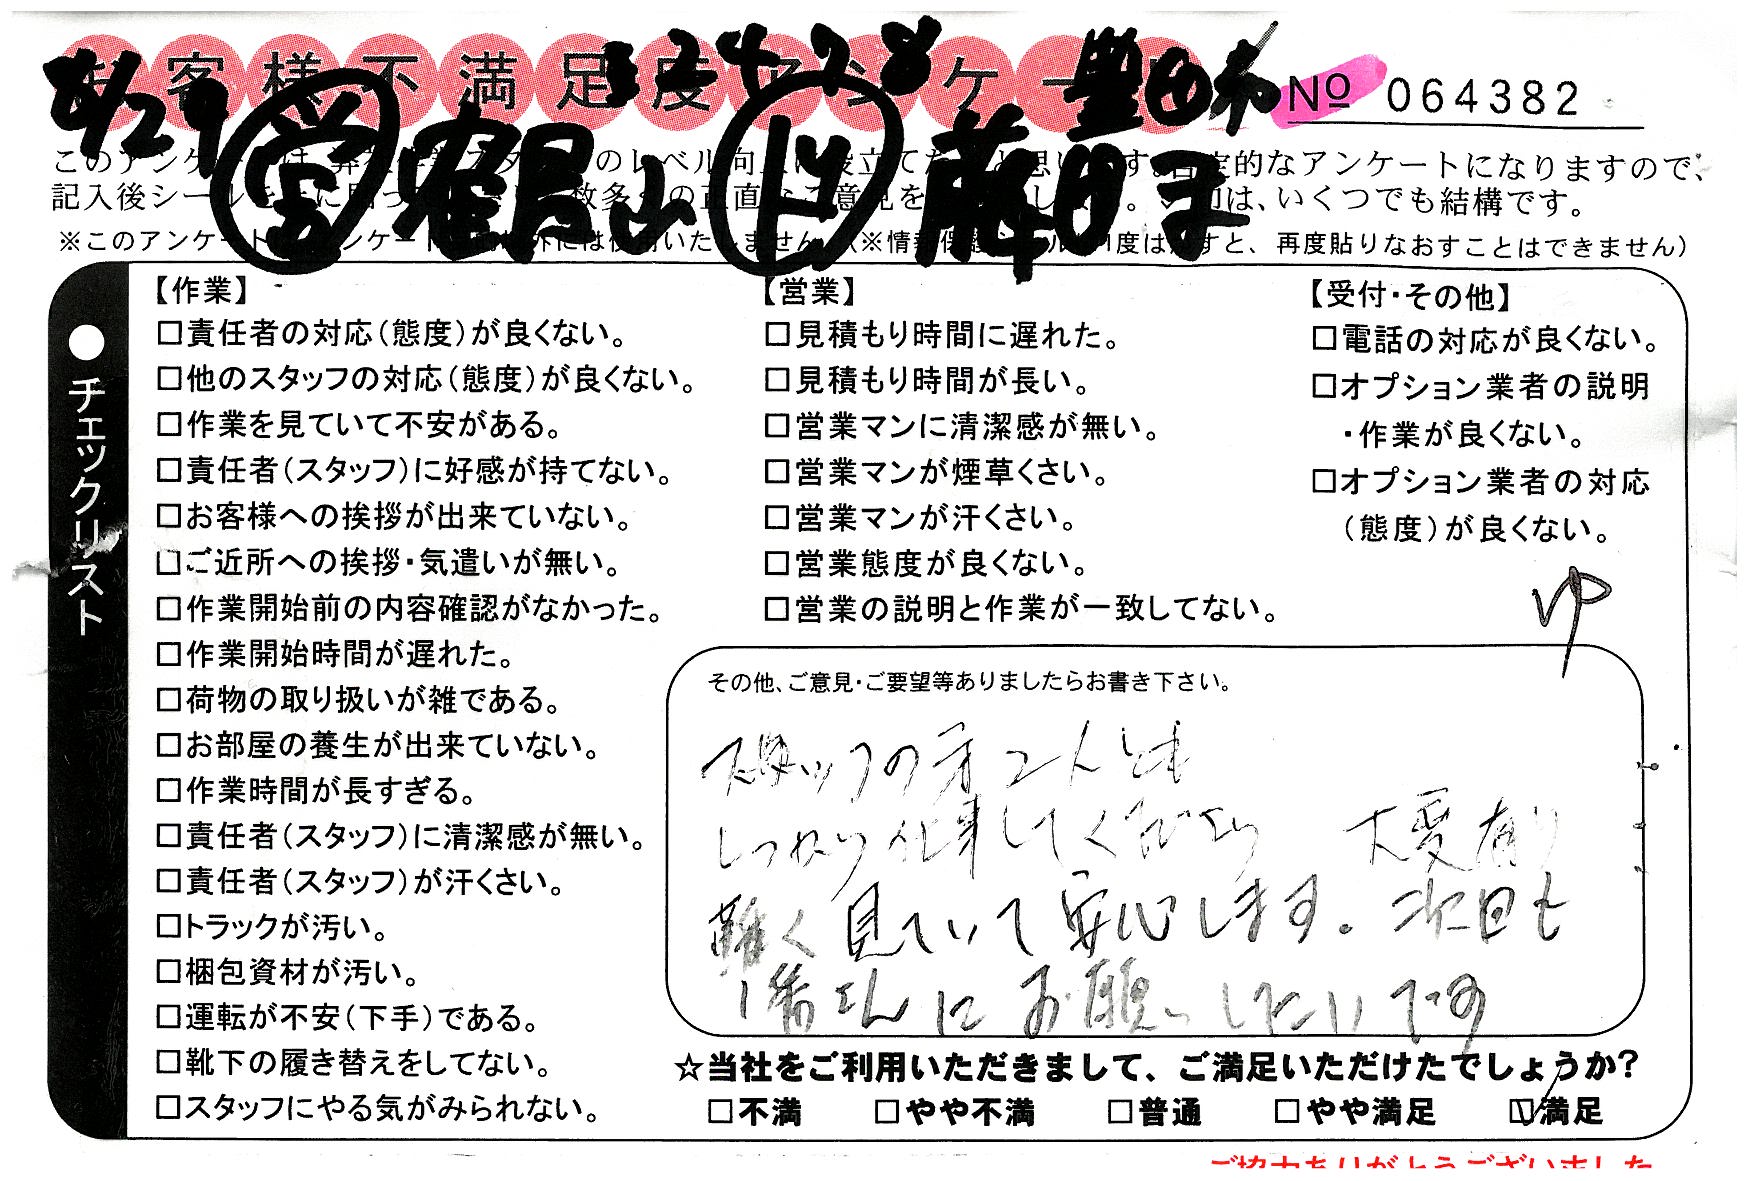 お客様不満足度アンケート
8/29 32428 豊田市
№ 064382
営 鶴山 藤田
このアンケートは、のレベル向上に役立てたいと思います。否定的なアンケートになりますので、
記入後シールを数多くの正直なご意見をは、いくつでも結構です。
※このアンケート使用いたしません（※情報保護シールは1度はがすと、再度貼りなおすことはできません）
●チェックリスト
【作業】
□責任者の対応（態度）が良くない。
□他のスタッフの対応（態度）が良くない。
□作業を見ていて不安がある。
□責任者（スタッフ）に好感が持てない。
□お客様への挨拶が出来ていない。
□ご近所への挨拶・気遣いが無い。
□作業開始前の内容確認がなかった。
□作業開始時間が遅れた。
□荷物の取り扱いが雑である。
□お部屋の養生が出来ていない。
□作業時間が長すぎる。
□責任者（スタッフ）に清潔感が無い。
□責任者（スタッフ）が汗くさい。
□トラックが汚い。
□梱包資材が汚い。
□運転が不安（下手）である。
□靴下の履き替えをしてない。
□スタッフにやる気がみられない。
【営業】
□見積もり時間に遅れた。
□見積もり時間が長い。
□営業マンに清潔感が無い。
□営業マンが煙草くさい。
□営業マンが汗くさい。
□営業態度が良くない。
□営業の説明と作業が一致してない。
【受付・その他】
□電話の対応が良くない。
□オプション業者の説明
・作業が良くない。
□オプション業者の対応
（態度）が良くない。
その他、ご意見・ご要望等ありましたらお書き下さい。
スタッフの方2人とも
しっかり仕事してくださり 大変有り
難く見ていて安心します。次回も
1番さんにお願いしたいです
☆当社をご利用いただきまして、ご満足いただけたでしょうか？
□不満 □やや不満 □普通 □やや満足 ☑満足
ご協力ありがとうございました